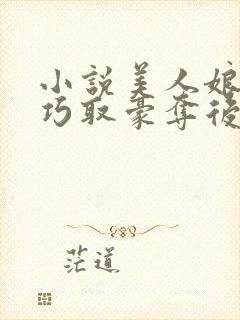 小說美人娘
巧取豪奪後
茫道